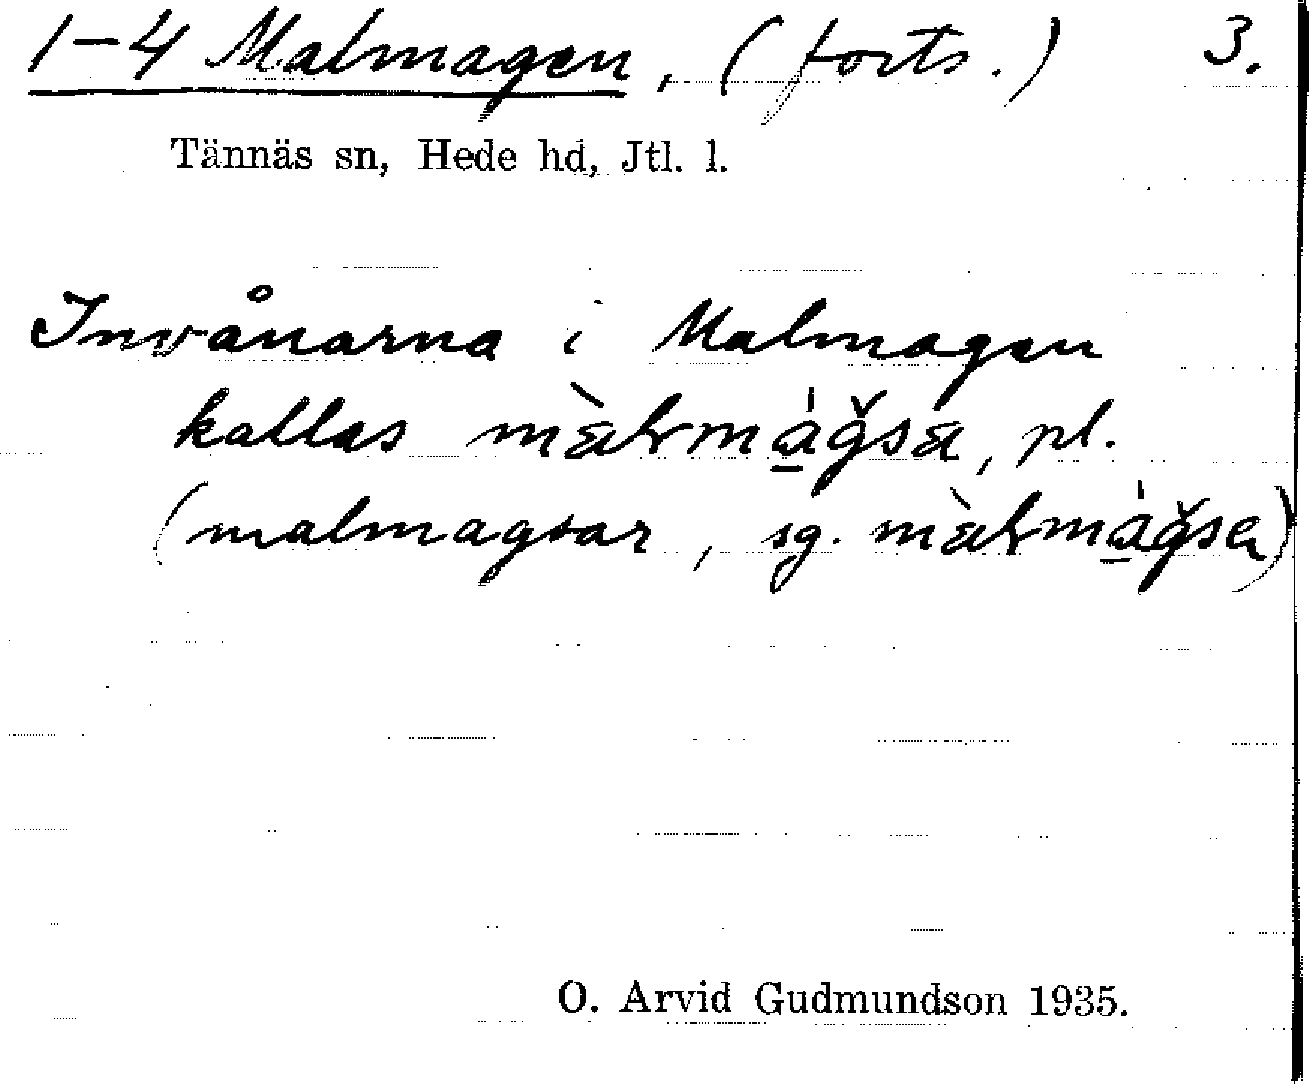 1-4 Malmagen, (forts.) 3.
Tännäs sn, Hede hd, Jtl. l.
Invånarna i Malmagen
kallas pl.
(malmagsar, sg.
O. Arvid Gudmundson 1935.